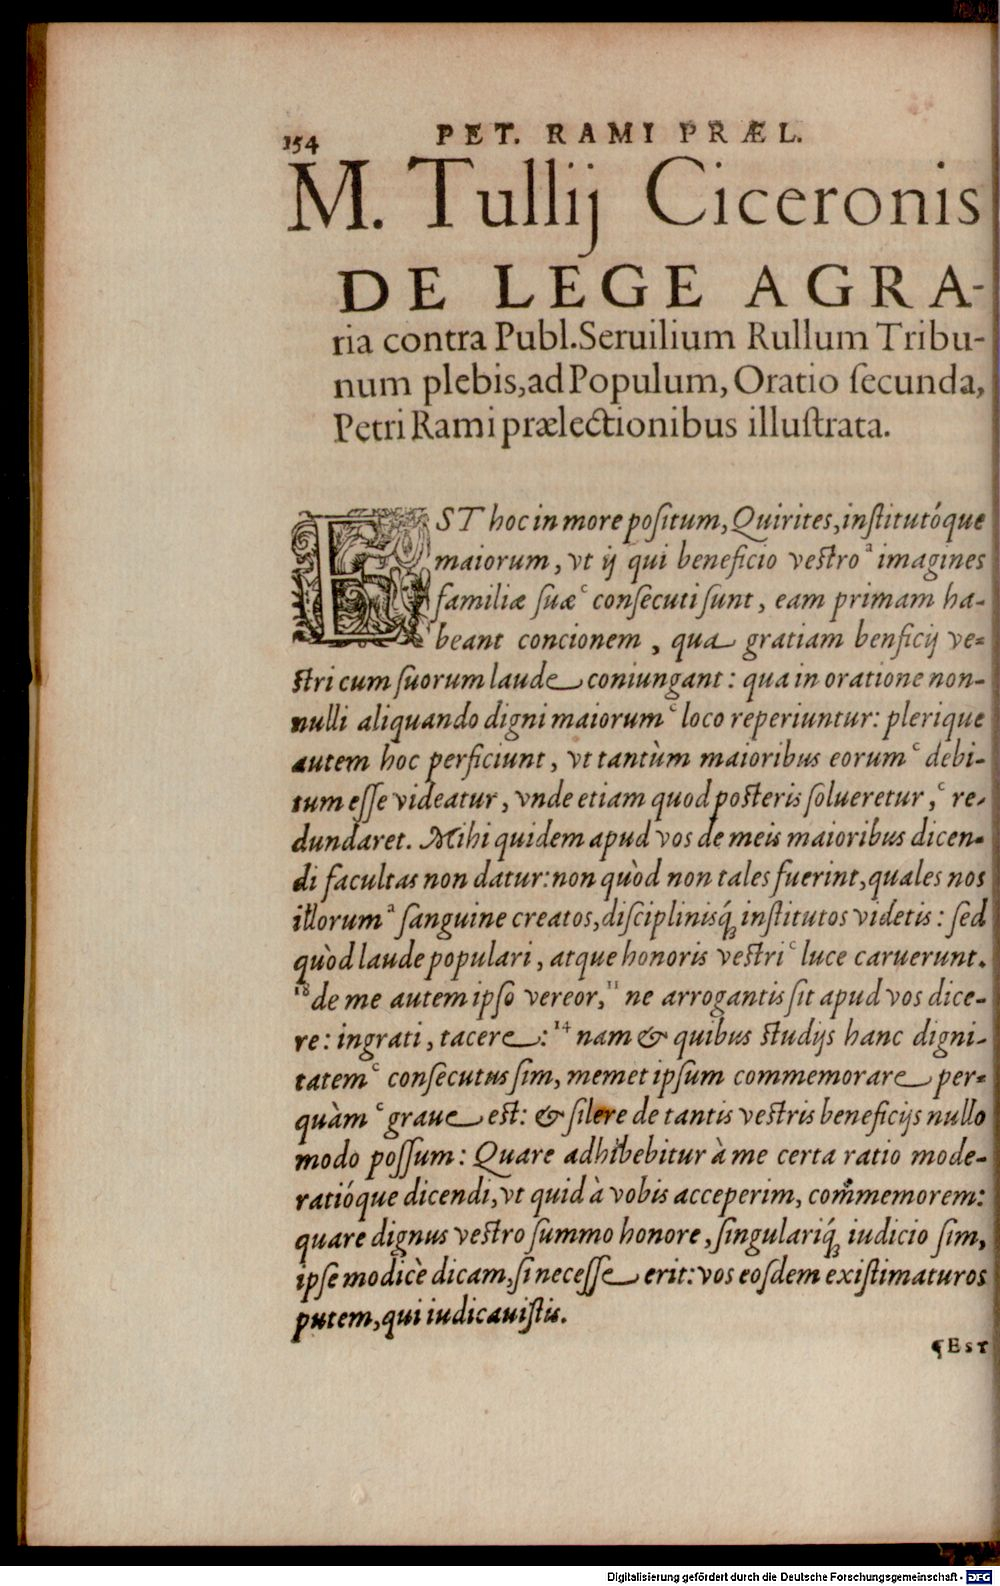 154 PET. RAMI PRÆL.
M. Tullij Ciceronis
DE LEGE AGRA-
ria contra Publ. Seruilium Rullum Tribu-
num plebis, ad Populum, Oratio ſecunda,
Petri Rami prælectionibus illuſtrata.
EST hoc in more poſitum, Quirites, inſtitutóque
maiorum, vt ij qui beneficio veſtro ᵃ imagines
familiæ ſuæ ᶜ conſecuti ſunt, eam primam ha-
beant concionem, qua gratiam benficij ve-
ſtri cum ſuorum laude coniungant: qua in oratione non-
nulli aliquando digni maiorum ᶜ loco reperiuntur: plerique
autem hoc perficiunt, vt tantùm maioribus eorum ᶜ debi-
tum eſſe videatur, vnde etiam quod poſteris ſolueretur, ᶜ re-
dundaret. Mihi quidem apud vos de meis maioribus dicen-
di facultas non datur: non quòd non tales fuerint, quales nos
illorum ᵃ ſanguine creatos, diſciplinisq́; inſtitutos videtis: ſed
quòd laude populari, atque honoris veſtri ᶜ luce caruerunt.
¹⁸ de me autem ipſo vereor, ¹¹ ne arrogantis ſit apud vos dice-
re: ingrati, tacere: ¹⁴ nam & quibus ſtudijs hanc digni-
tatem ᶜ conſecutus ſim, memet ipſum commemorare per-
quàm ᶜ graue eſt: & ſilere de tantis veſtris beneficijs nullo
modo poſſum: Quare adhibebitur à me certa ratio mode-
ratióque dicendi, vt quid à vobis acceperim, commemorem:
quare dignus veſtro ſummo honore, ſingulariq́; iudicio ſim,
ipſe modicè dicam, ſi neceſſe erit: vos eoſdem exiſtimaturos
putem, qui iudicauiſtis.
¶EST
Digitalisierung gefördert durch die Deutsche Forschungsgemeinschaft - DFG